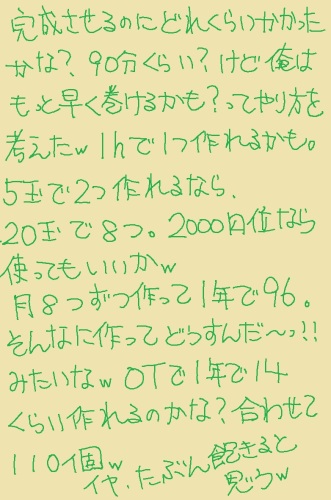 完成させるのにどれくらいかかった
かな？90分くらい？けど俺は
もっと早く巻けるかも？ってやり方を
考えたw 1hで1つ作れるかも。
5玉で2つ作れるなら、
20玉で8つ。2000円位なら
使ってもいいかw
月8つずつ作って1年で96。
そんなに作ってどうすんだ～っ!!
みたいなw OTで1年で14
くらい作れるのかな？合わせて
110個w
イヤ、たぶん飽きると
思うw